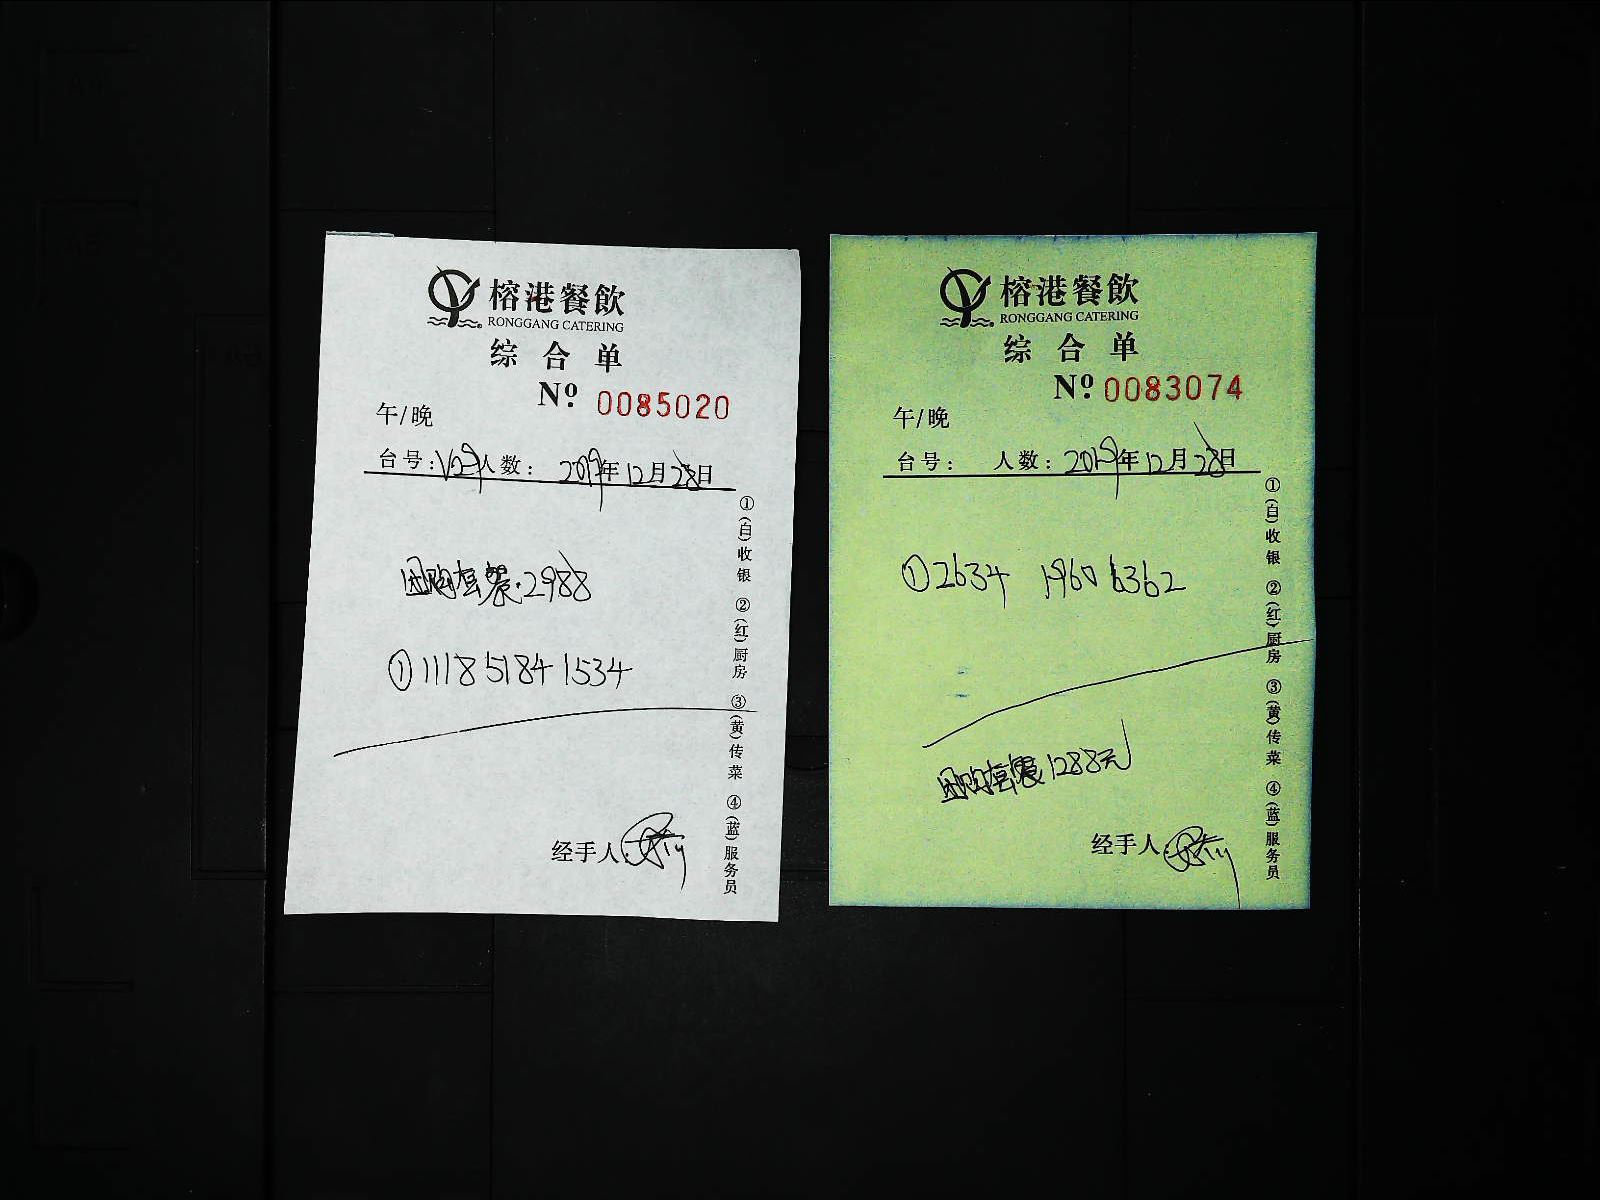 榕港餐飲
RONGGANG CATERING
综合单
Nº. 0085020
午/晚
台号:V29人数: 2019年12月28日
团购套餐:2988
①1118 5184 1534
经手人:
①(白)收银 ②(红)厨房 ③(黄)传菜 ④(蓝)服务员
榕港餐飲
RONGGANG CATERING
综合单
Nº. 0083074
午/晚
台号: 人数: 2019年12月28日
①2634 1960 6362
团购套餐1288元
经手人:
①(白)收银 ②(红)厨房 ③(黄)传菜 ④(蓝)服务员